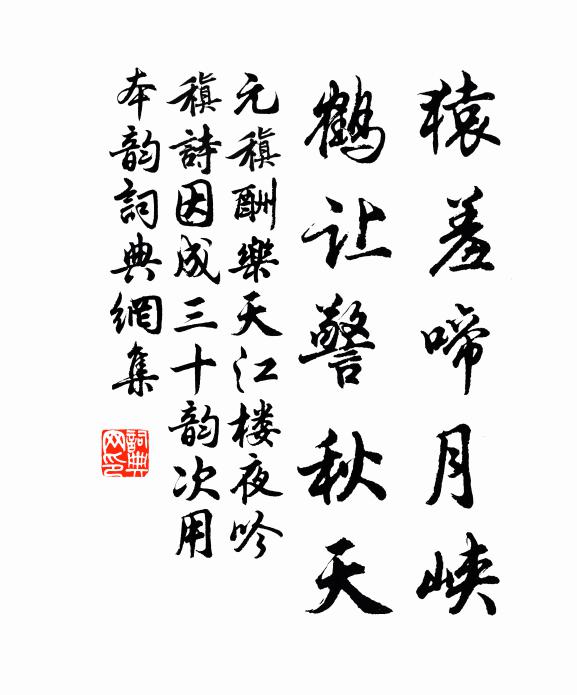 猿羞啼月峡
鹤让警秋天
元稹酬樂天江楼夜吟
稹詩因成三十韵次用
本韵詞典網集
詞典网印